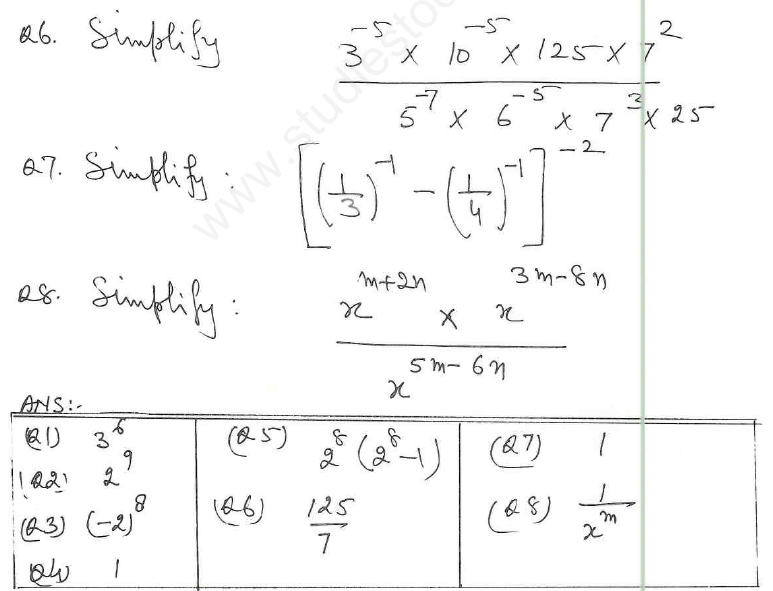 Q6. Simplify 3^-5 × 10^-5 × 125 × 7^2
5^-7 × 6^-5 × 7^3 × 25
Q7. Simplify : [(1/3)^-1 - (1/4)^-1]^-2
Q8. Simplify : x^m+2n × x^3m-8n
x^5m-6n
ANS:-
(Q1) 3^6
(Q2) 2^9
(Q3) (-2)^8
Q4) 1
(Q5) 2^8 (2^8-1)
(Q6) 125/7
(Q7) 1
(Q8) 1/x^m